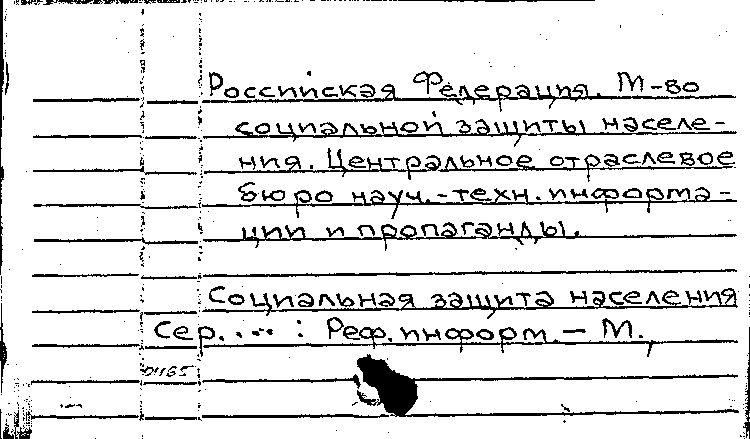 Российская Федерация. М-во
социальной защиты населе-
ния. Центральное отраслевое
бюро науч.-техн. информа-
ции и пропаганды.
Социальная защита населения
Сер. .... : Реф. информ. – М.,